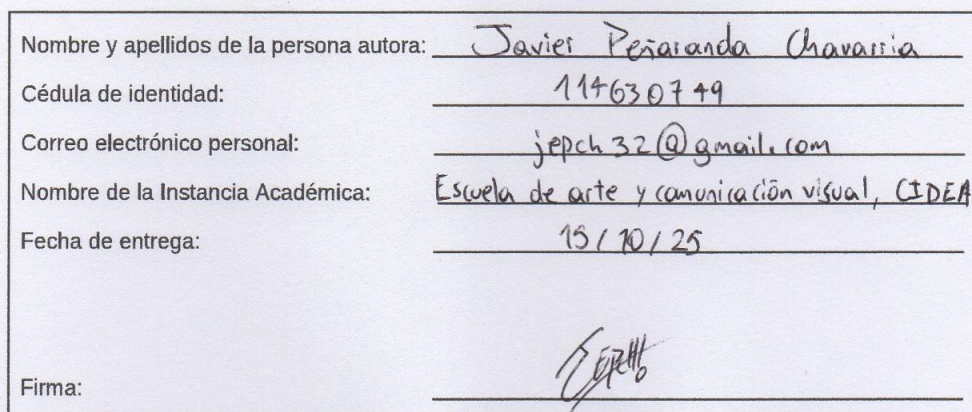 Nombre y apellidos de la persona autora: Javier Peñaranda Chavarria
Cédula de identidad: 114630749
Correo electrónico personal: jepch32@gmail.com
Nombre de la Instancia Académica: Escuela de arte y comunicación visual, CIDEA
Fecha de entrega: 15/10/25
Firma: